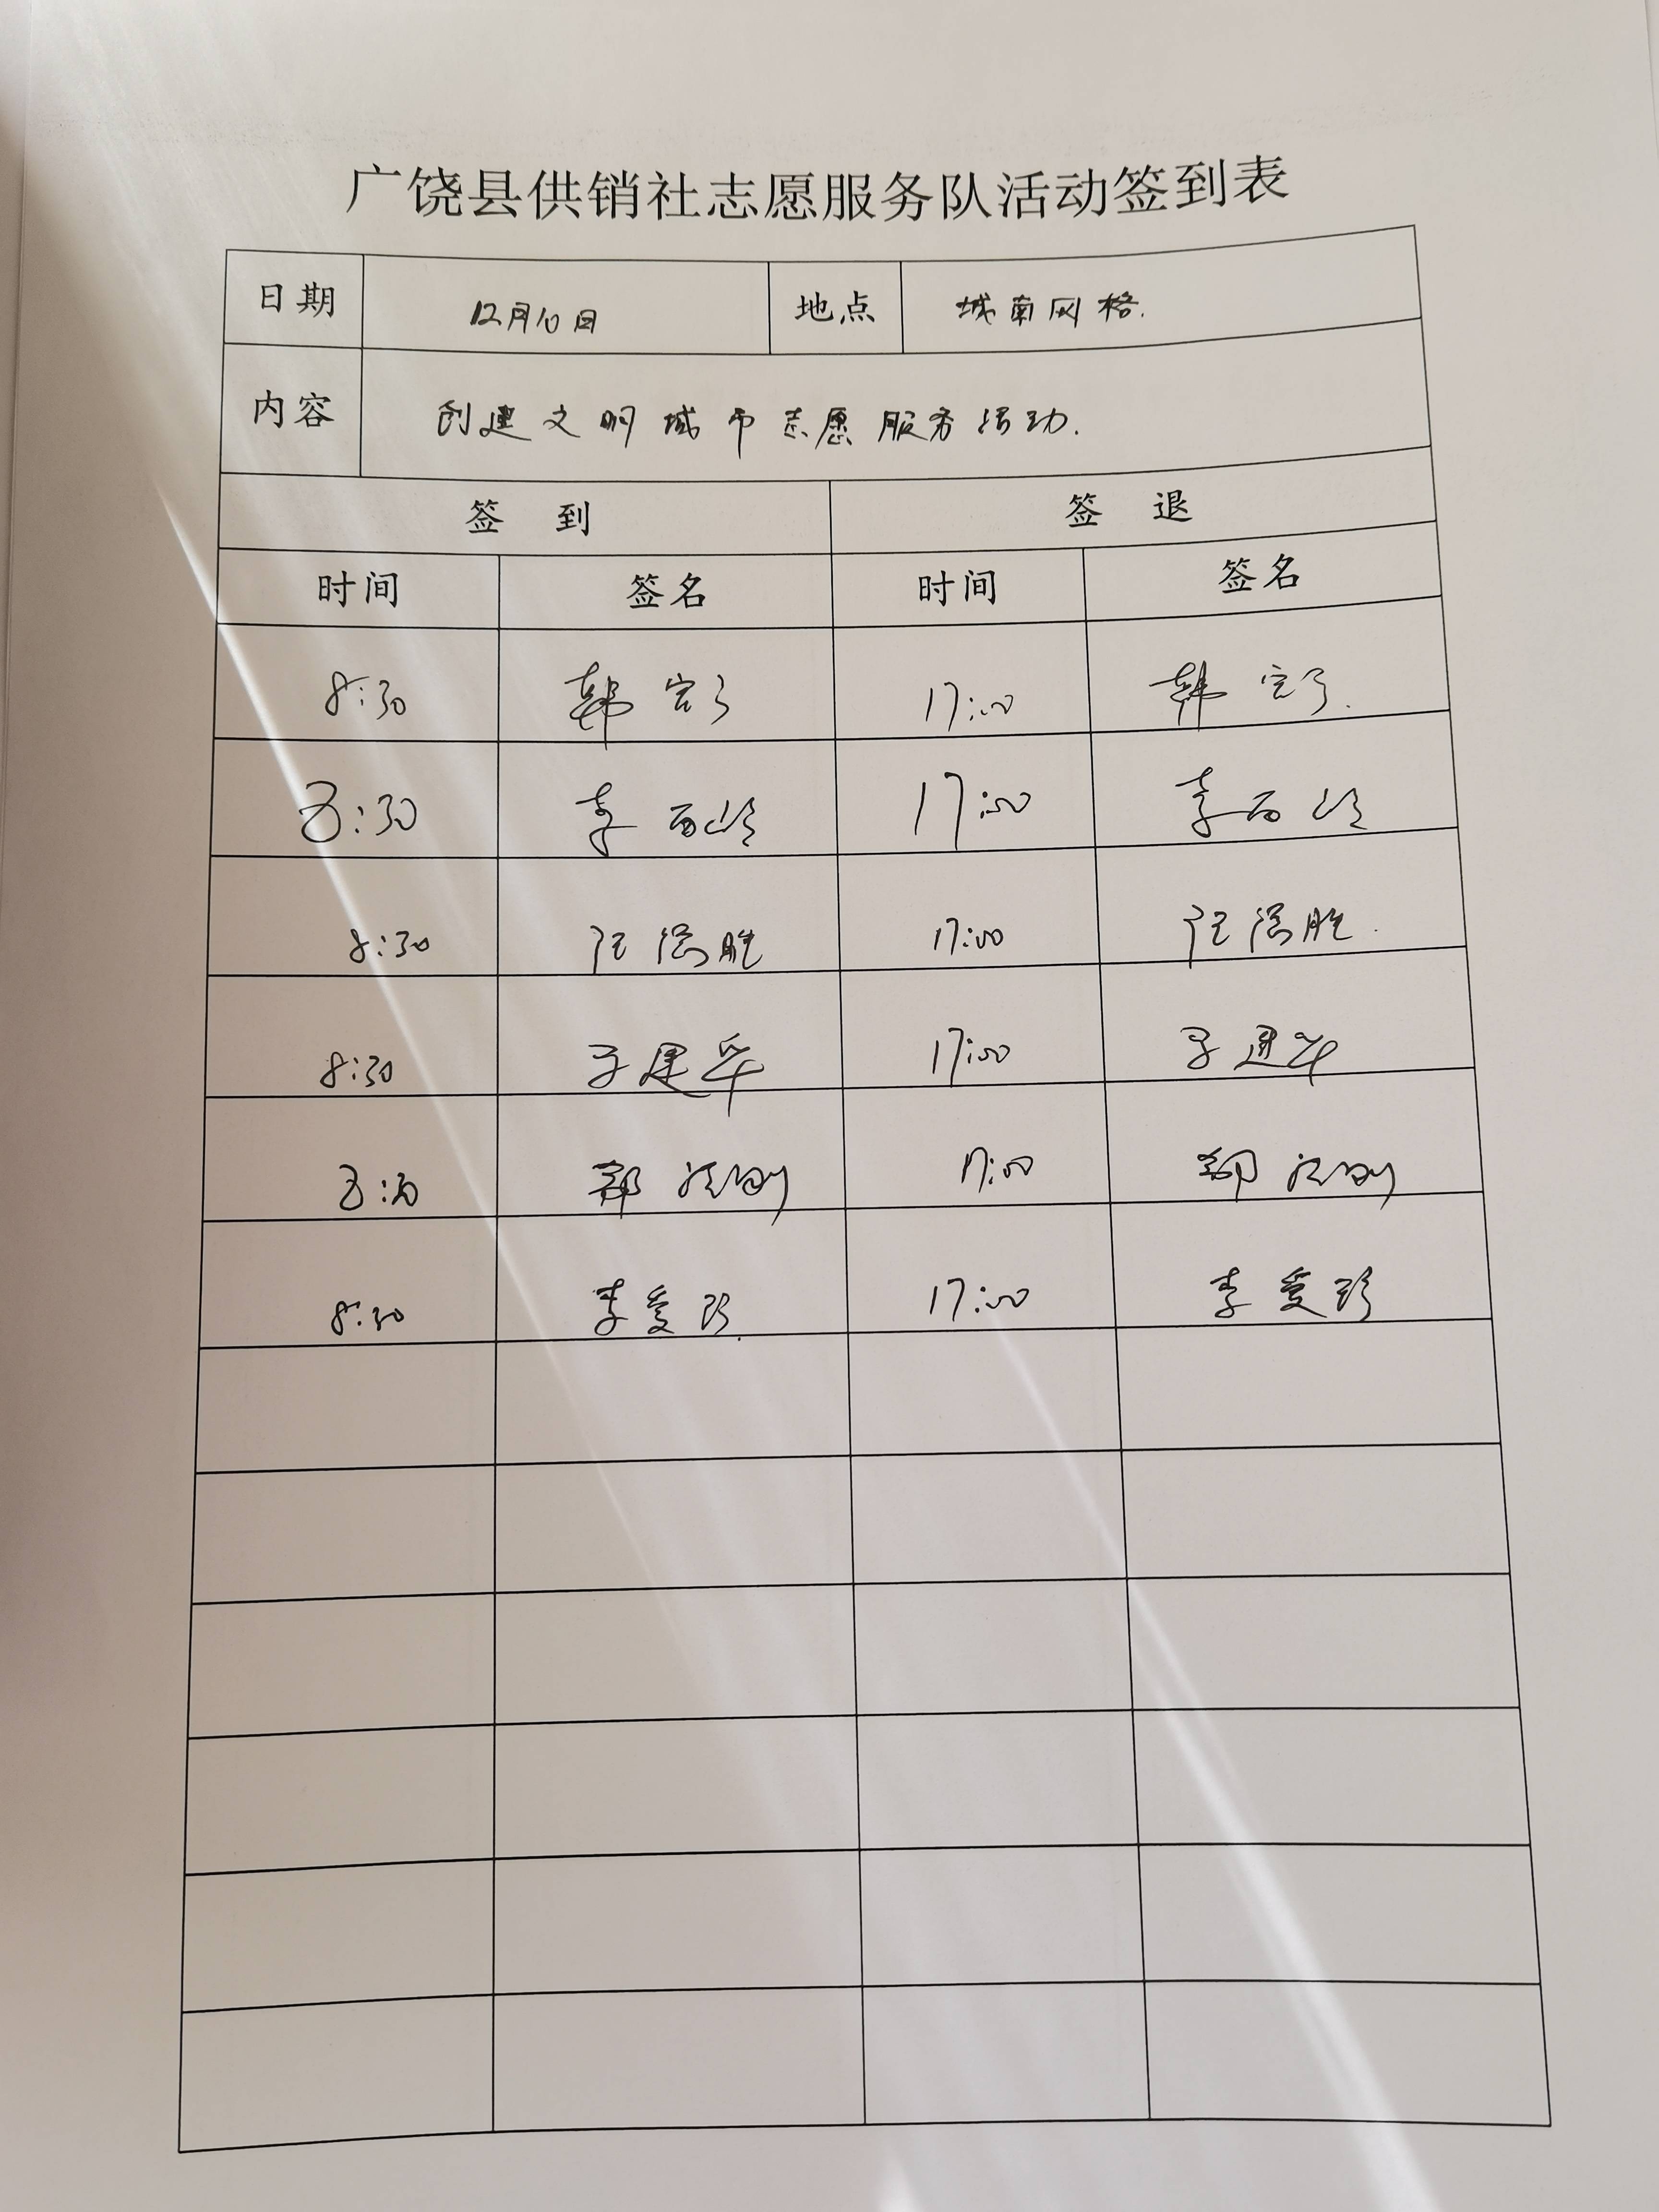 广饶县供销社志愿服务队活动签到表
日期 12月10日 地点 城南网格.
内容 创建文明城市志愿服务活动.
签 到 签 退
时间 签名 时间 签名
8:30 韩 17:00 韩
8:30 李百岭 17:00 李百岭
8:30 胜 17:00 胜
8:30 于建华 17:00 于建华
8:30 17:00
8:30 李爱珍. 17:00 李爱珍